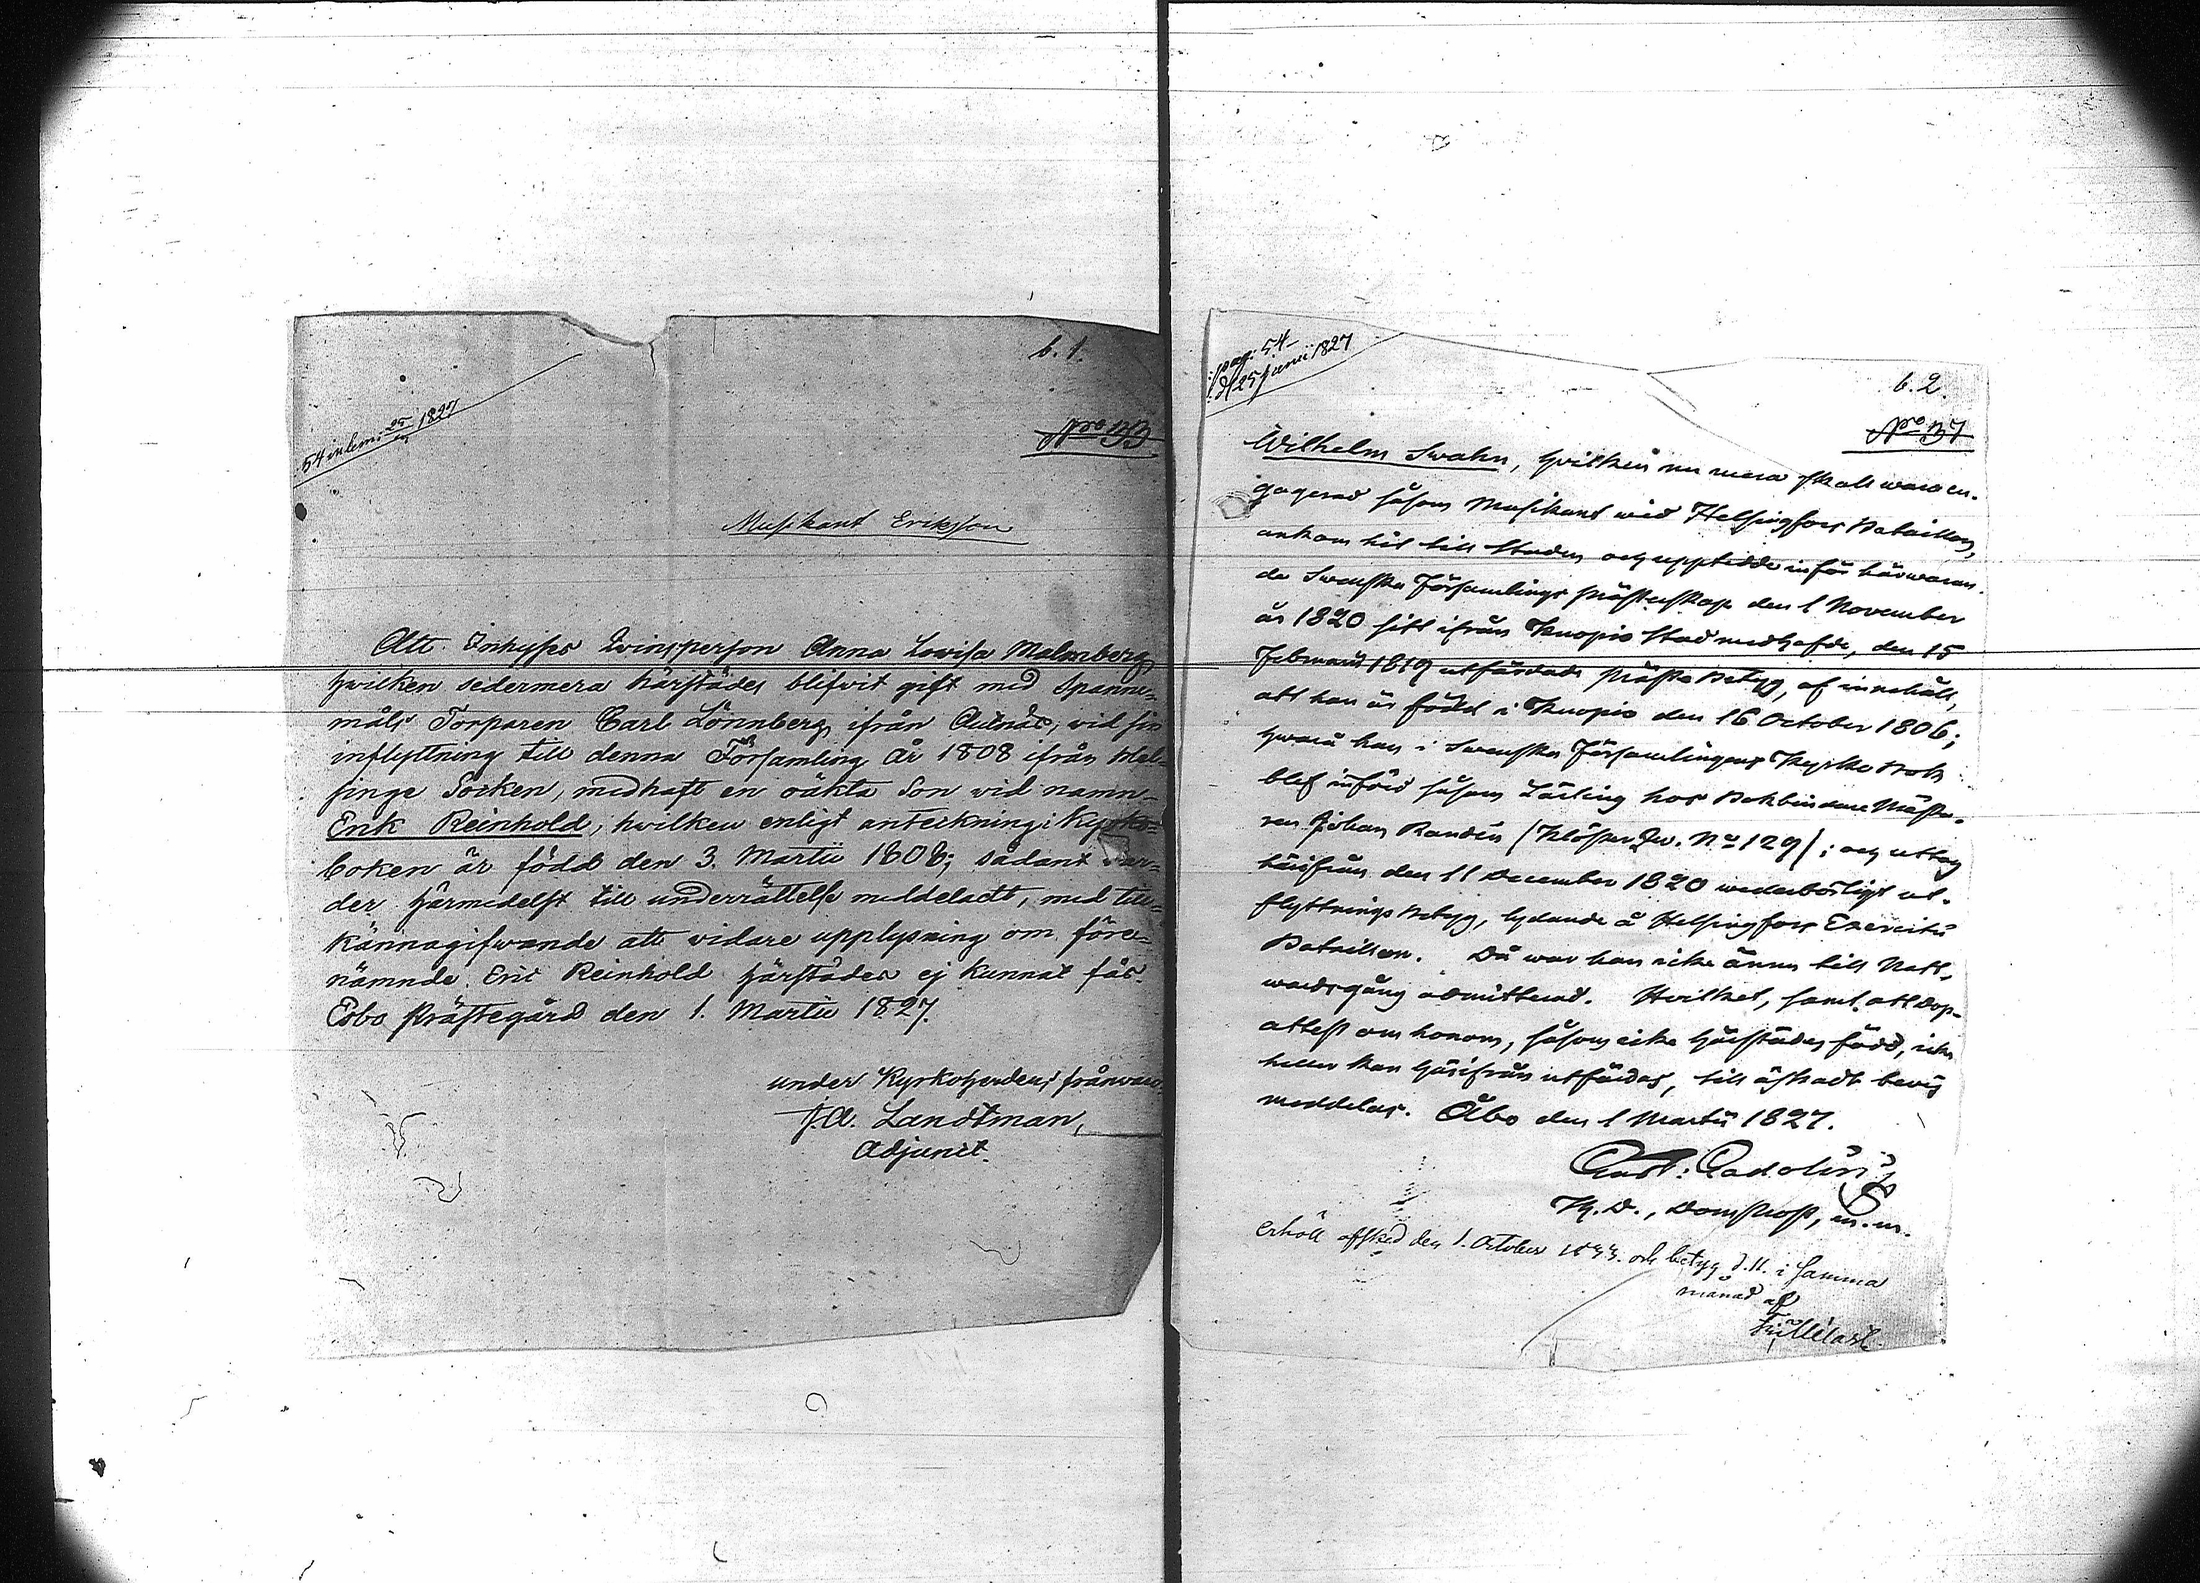 b. 1.
54 inlem: 25/6 1827
No 133
Musikant Eriksson
Att Inhyses Qvinsperson Anna Lovisa Malmberg,
hvilken sedermera härstädes blifvit gift med Spanne-
måls Torparen Carl Lönnberg ifrån, vid sin
inflyttning till denna Församling År 1808 ifrån Hel-
singe Socken, medhaft en oäkta Son vid namn
Erik Reinhold, hvilken enligt anteckning i Kyrko-
boken är född den 3. Martii 1808; sådant var-
der härmedelst till underrättelse meddeladt, med till-
kännagifwande att vidare upplysning om före-
nämnde Eric Reinhold härstädes ej kunnat fås.
Esbo Prästegård den 1. Martii 1827.
under Kyrkoherdens frånvaro
J. A. Landtman,
Adjunct.
pag: 54
d 25 Junii 1827
b. 2.
No 37
Wilhelm Swahn, hvilken nu mera skall wara en-
gagerad såsom Musikant wid Helsingfors Bataillon,
ankom hit till Staden och uppteedde inför härwaran-
de Swenska Församlings Prästerskap den 1 November
år 1820 sitt ifrån Kuopio Stad medhafde, den 15
Februarii 1819 utfärdade Präste Betyg, af innehåll,
att han är född i Kuopio den 16 October 1806;
hwarå han i Swenska Församlingens Kyrko Bok
blef införd såsom Lärling hos Bokbindare Mästa-
ren Johan Randén (Kloster Qw. No 129); och uttog
härifrån den 11 December 1820 wederbörligt ut-
flyttnings Betyg, lydande å Helsingfors Exercitii
Bataillon. Då war han icke ännu till Natt-
wardsgång admitterad. Hvilket, samt att Dop-
attest om honom, såsom icke härstädes född, icke
heller kan härifrån utfärdas, till äskadt bevis
meddelas. Åbo den 1 Martii 1827.
Gust: Gadolin
Th. D., Domprost, m. m.
Erhöll afsked den 1. October 1833. och betyg d. 11. i samma
månad af